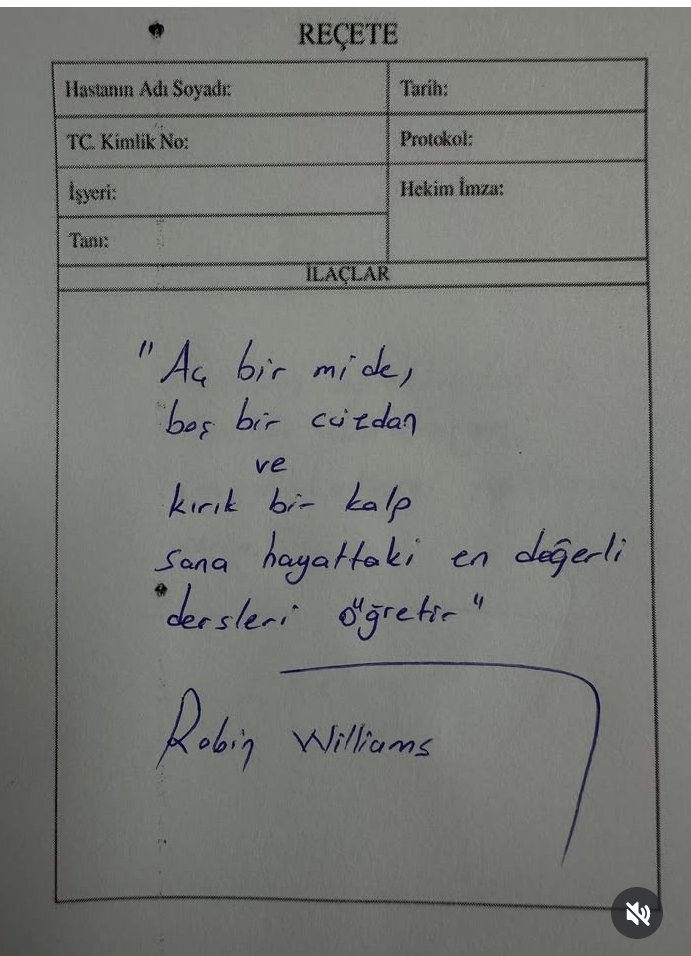 REÇETE
Hastanın Adı Soyadı:
Tarih:
TC. Kimlik No:
Protokol:
İşyeri:
Hekim İmza:
Tanı:
İLAÇLAR
"Aç bir mide,
boş bir cüzdan
ve
kırık bir kalp
sana hayattaki en değerli
dersleri öğretir"
Robin Williams